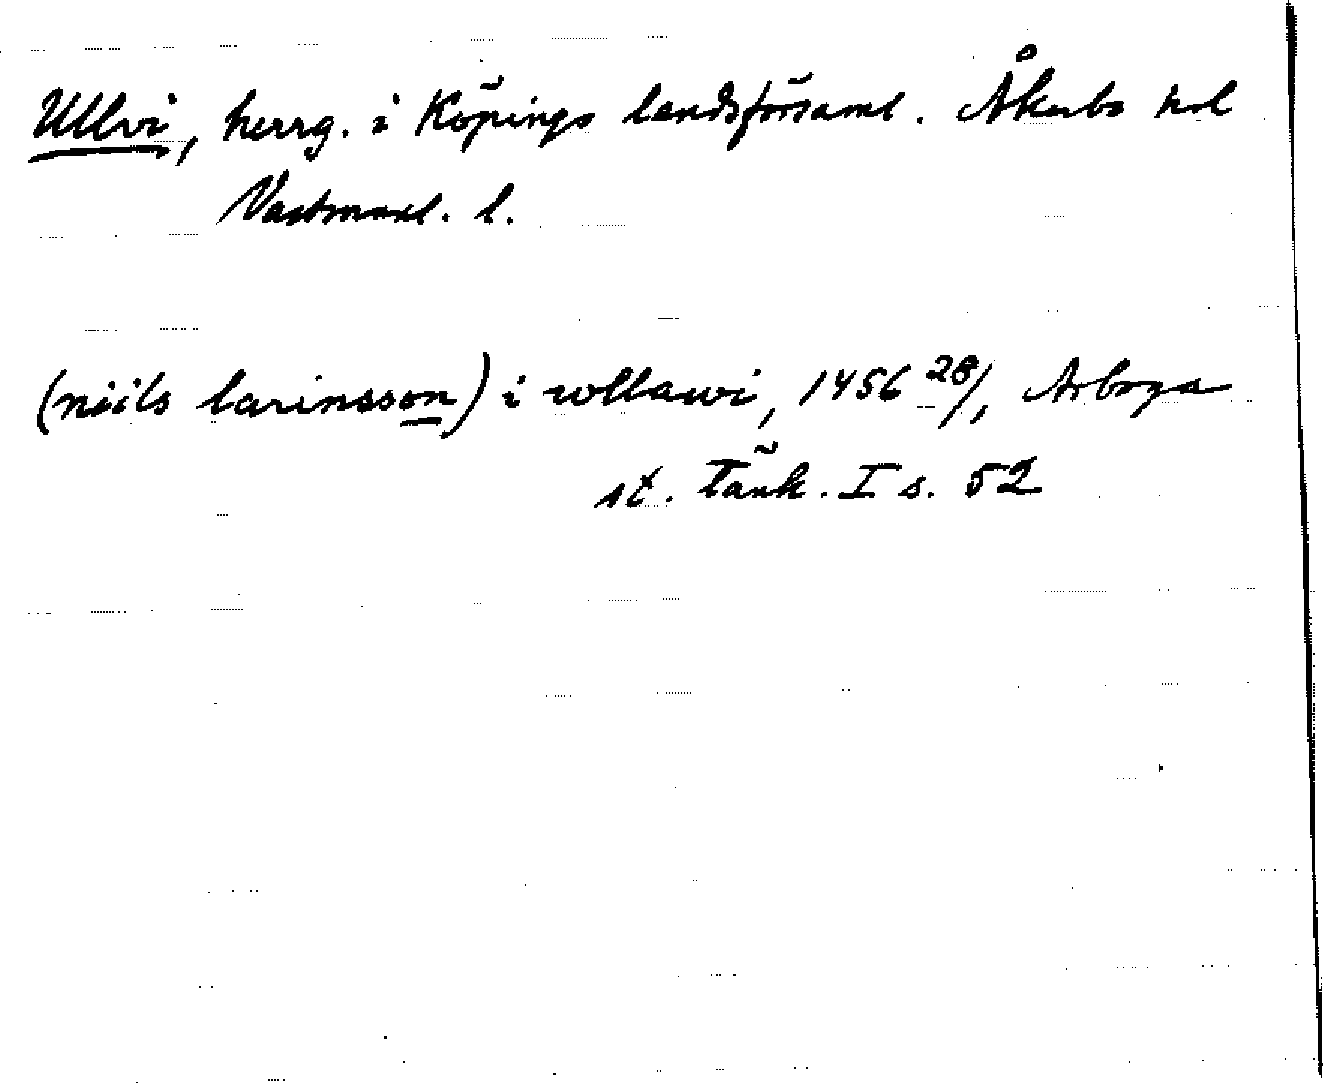 Ullvi, herrg. i Köpings landsförsaml. Åkerbo hd
Västmanl. l.
(niils larinsson) i wllawi, 1456 28/, Arboga
st. Tänk. I s. 52